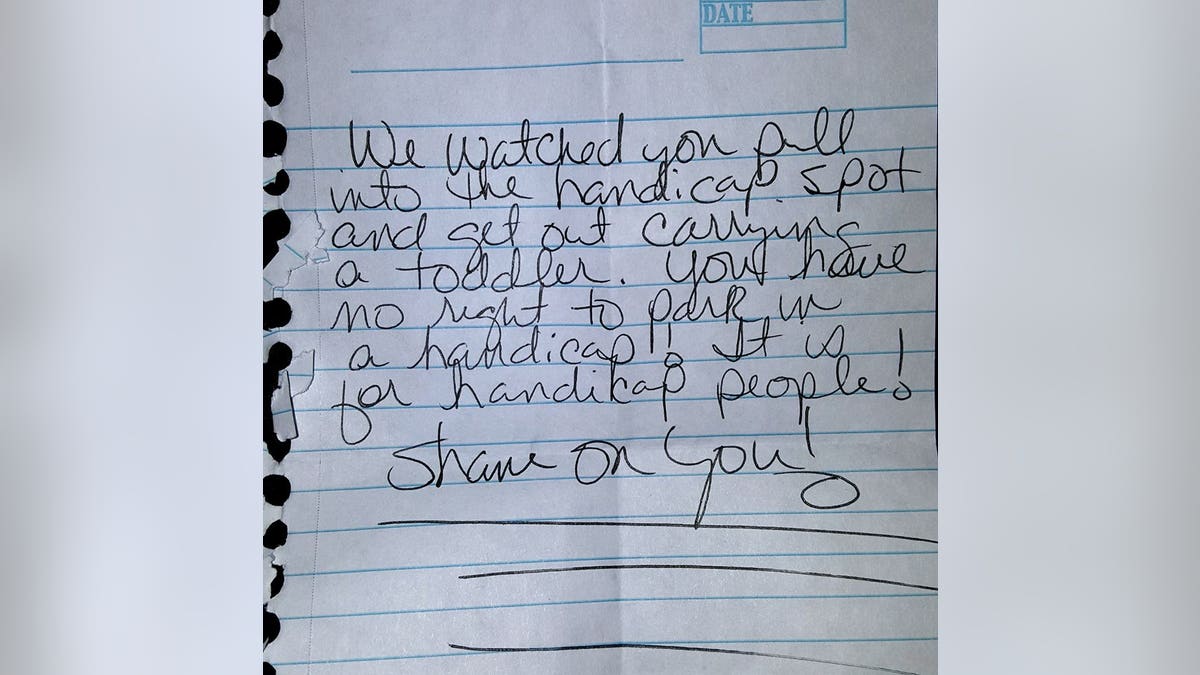 DATE
We watched you pull
into the handicap spot
and get out carrying
a toddler. You have
no right to park in
a handicap! It is
for handikap people!
Shame on You!